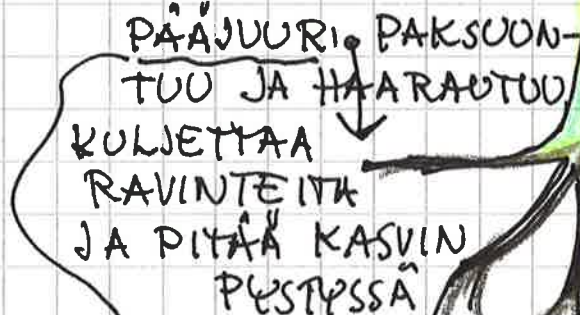 PÄÄJUURI • PAKSUUN-
TUU JA HAARAUTUU
KULJETTAA
RAVINTEITA
JA PITÄÄ KASVIN
PYSTYSSÄ